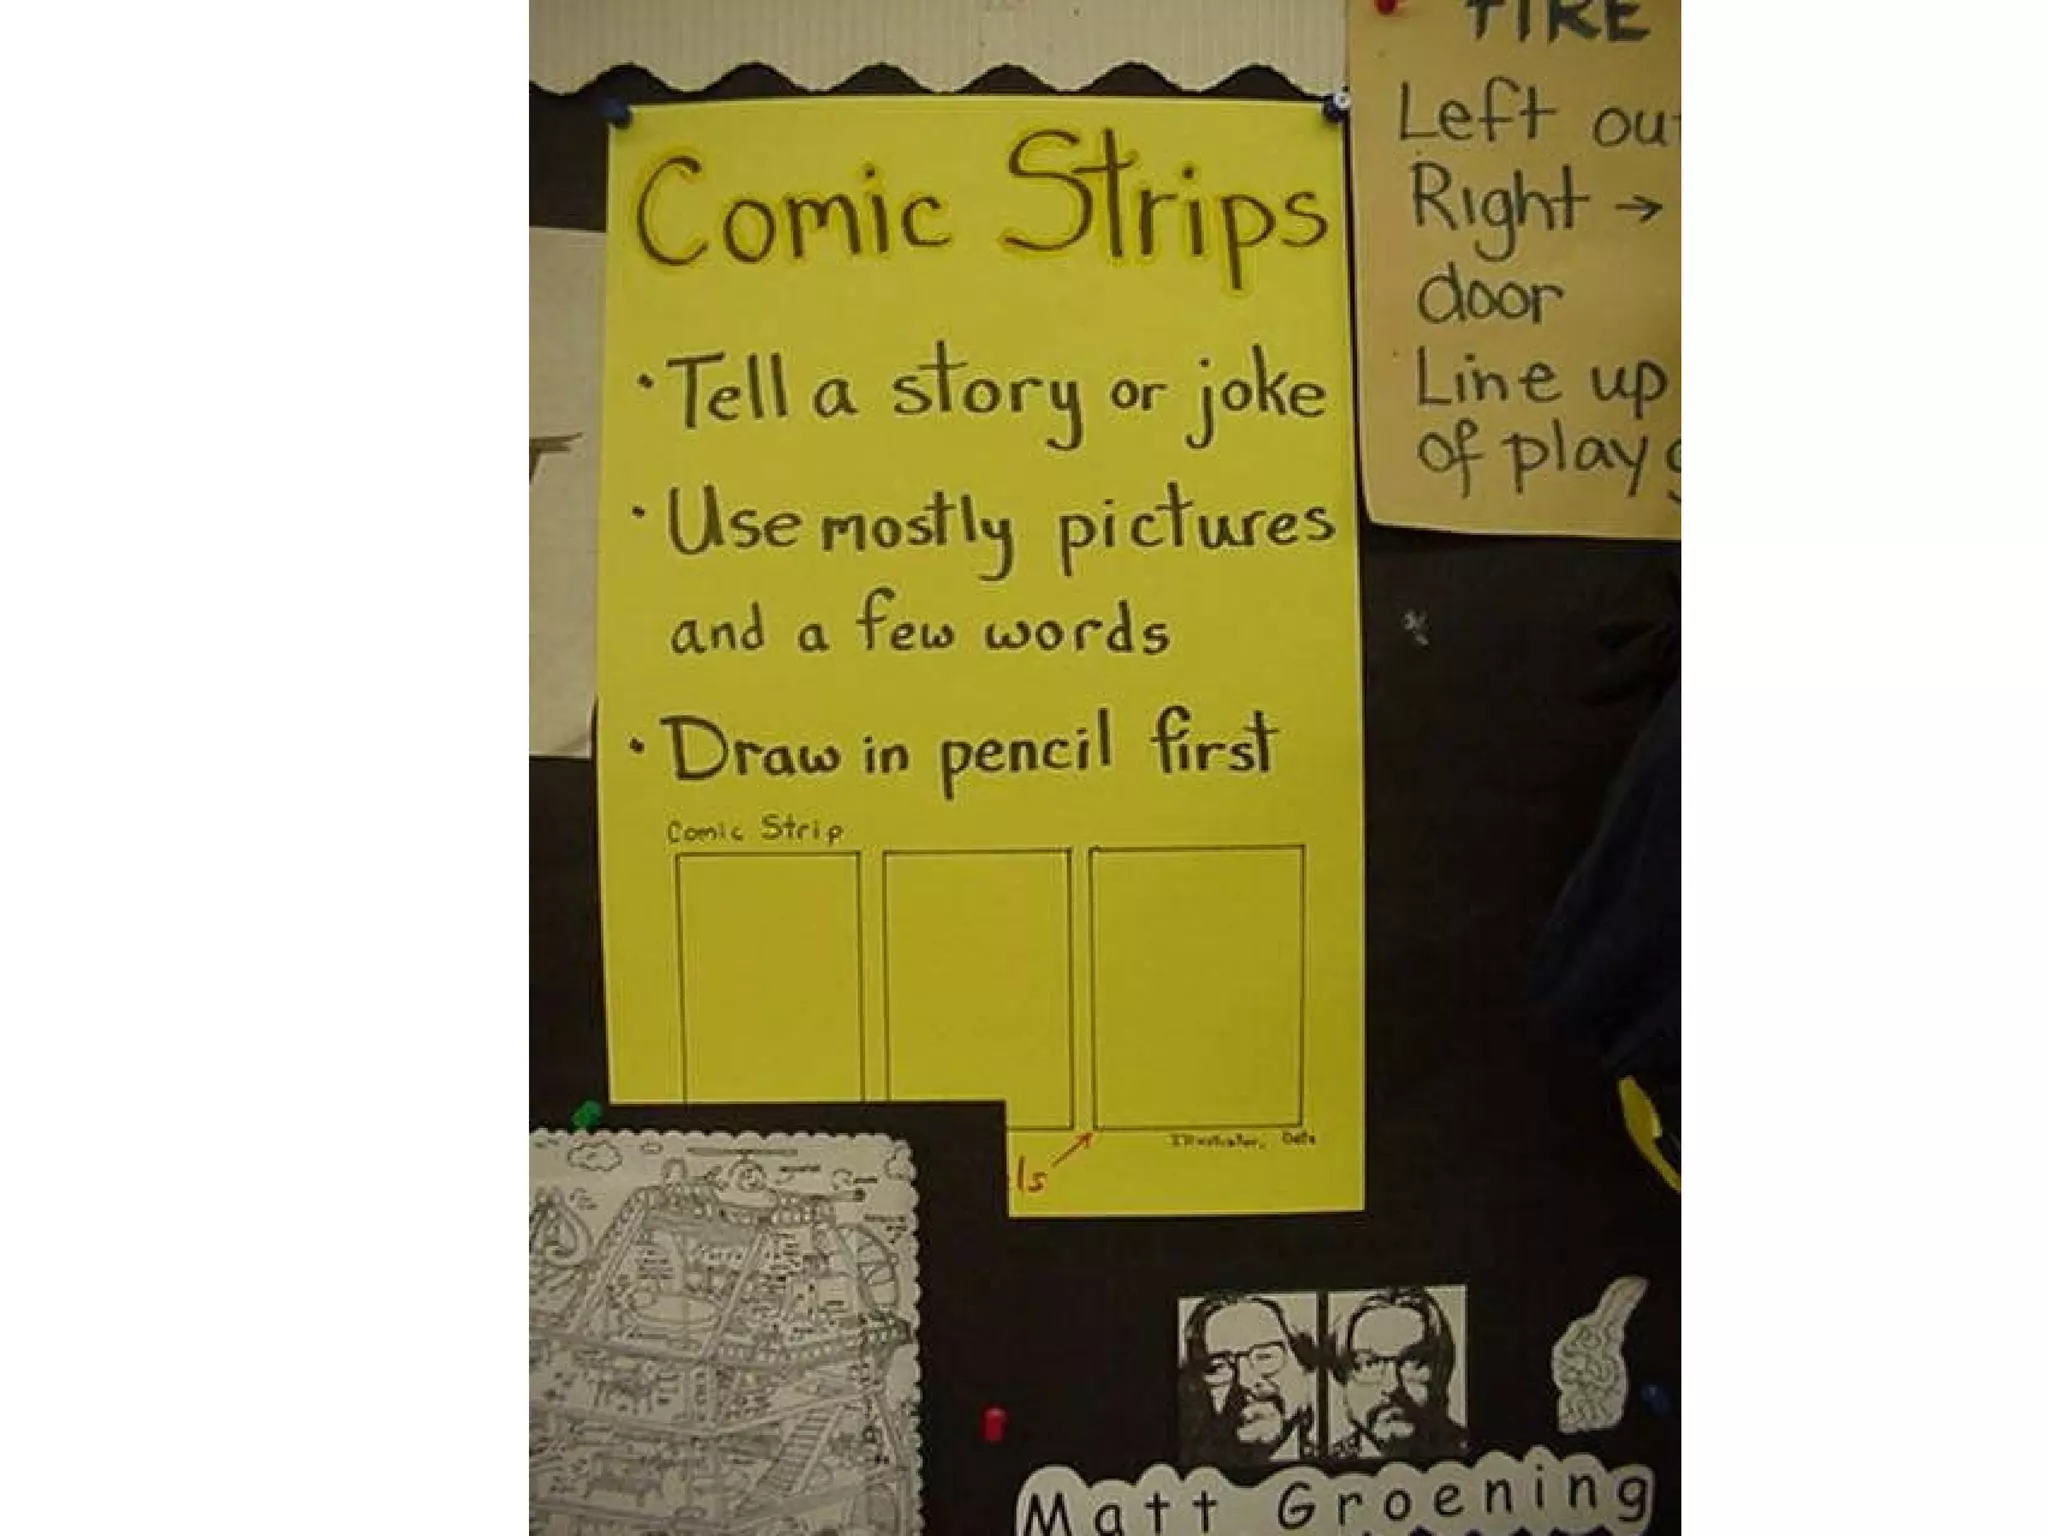 Comic Strips
• Tell a story or joke
• Use mostly pictures
and a few words
• Draw in pencil first
Comic Strip
Illustrator, Date
ls
FIRE
Left ou
Right →
door
Line up
of play g
Matt Groening